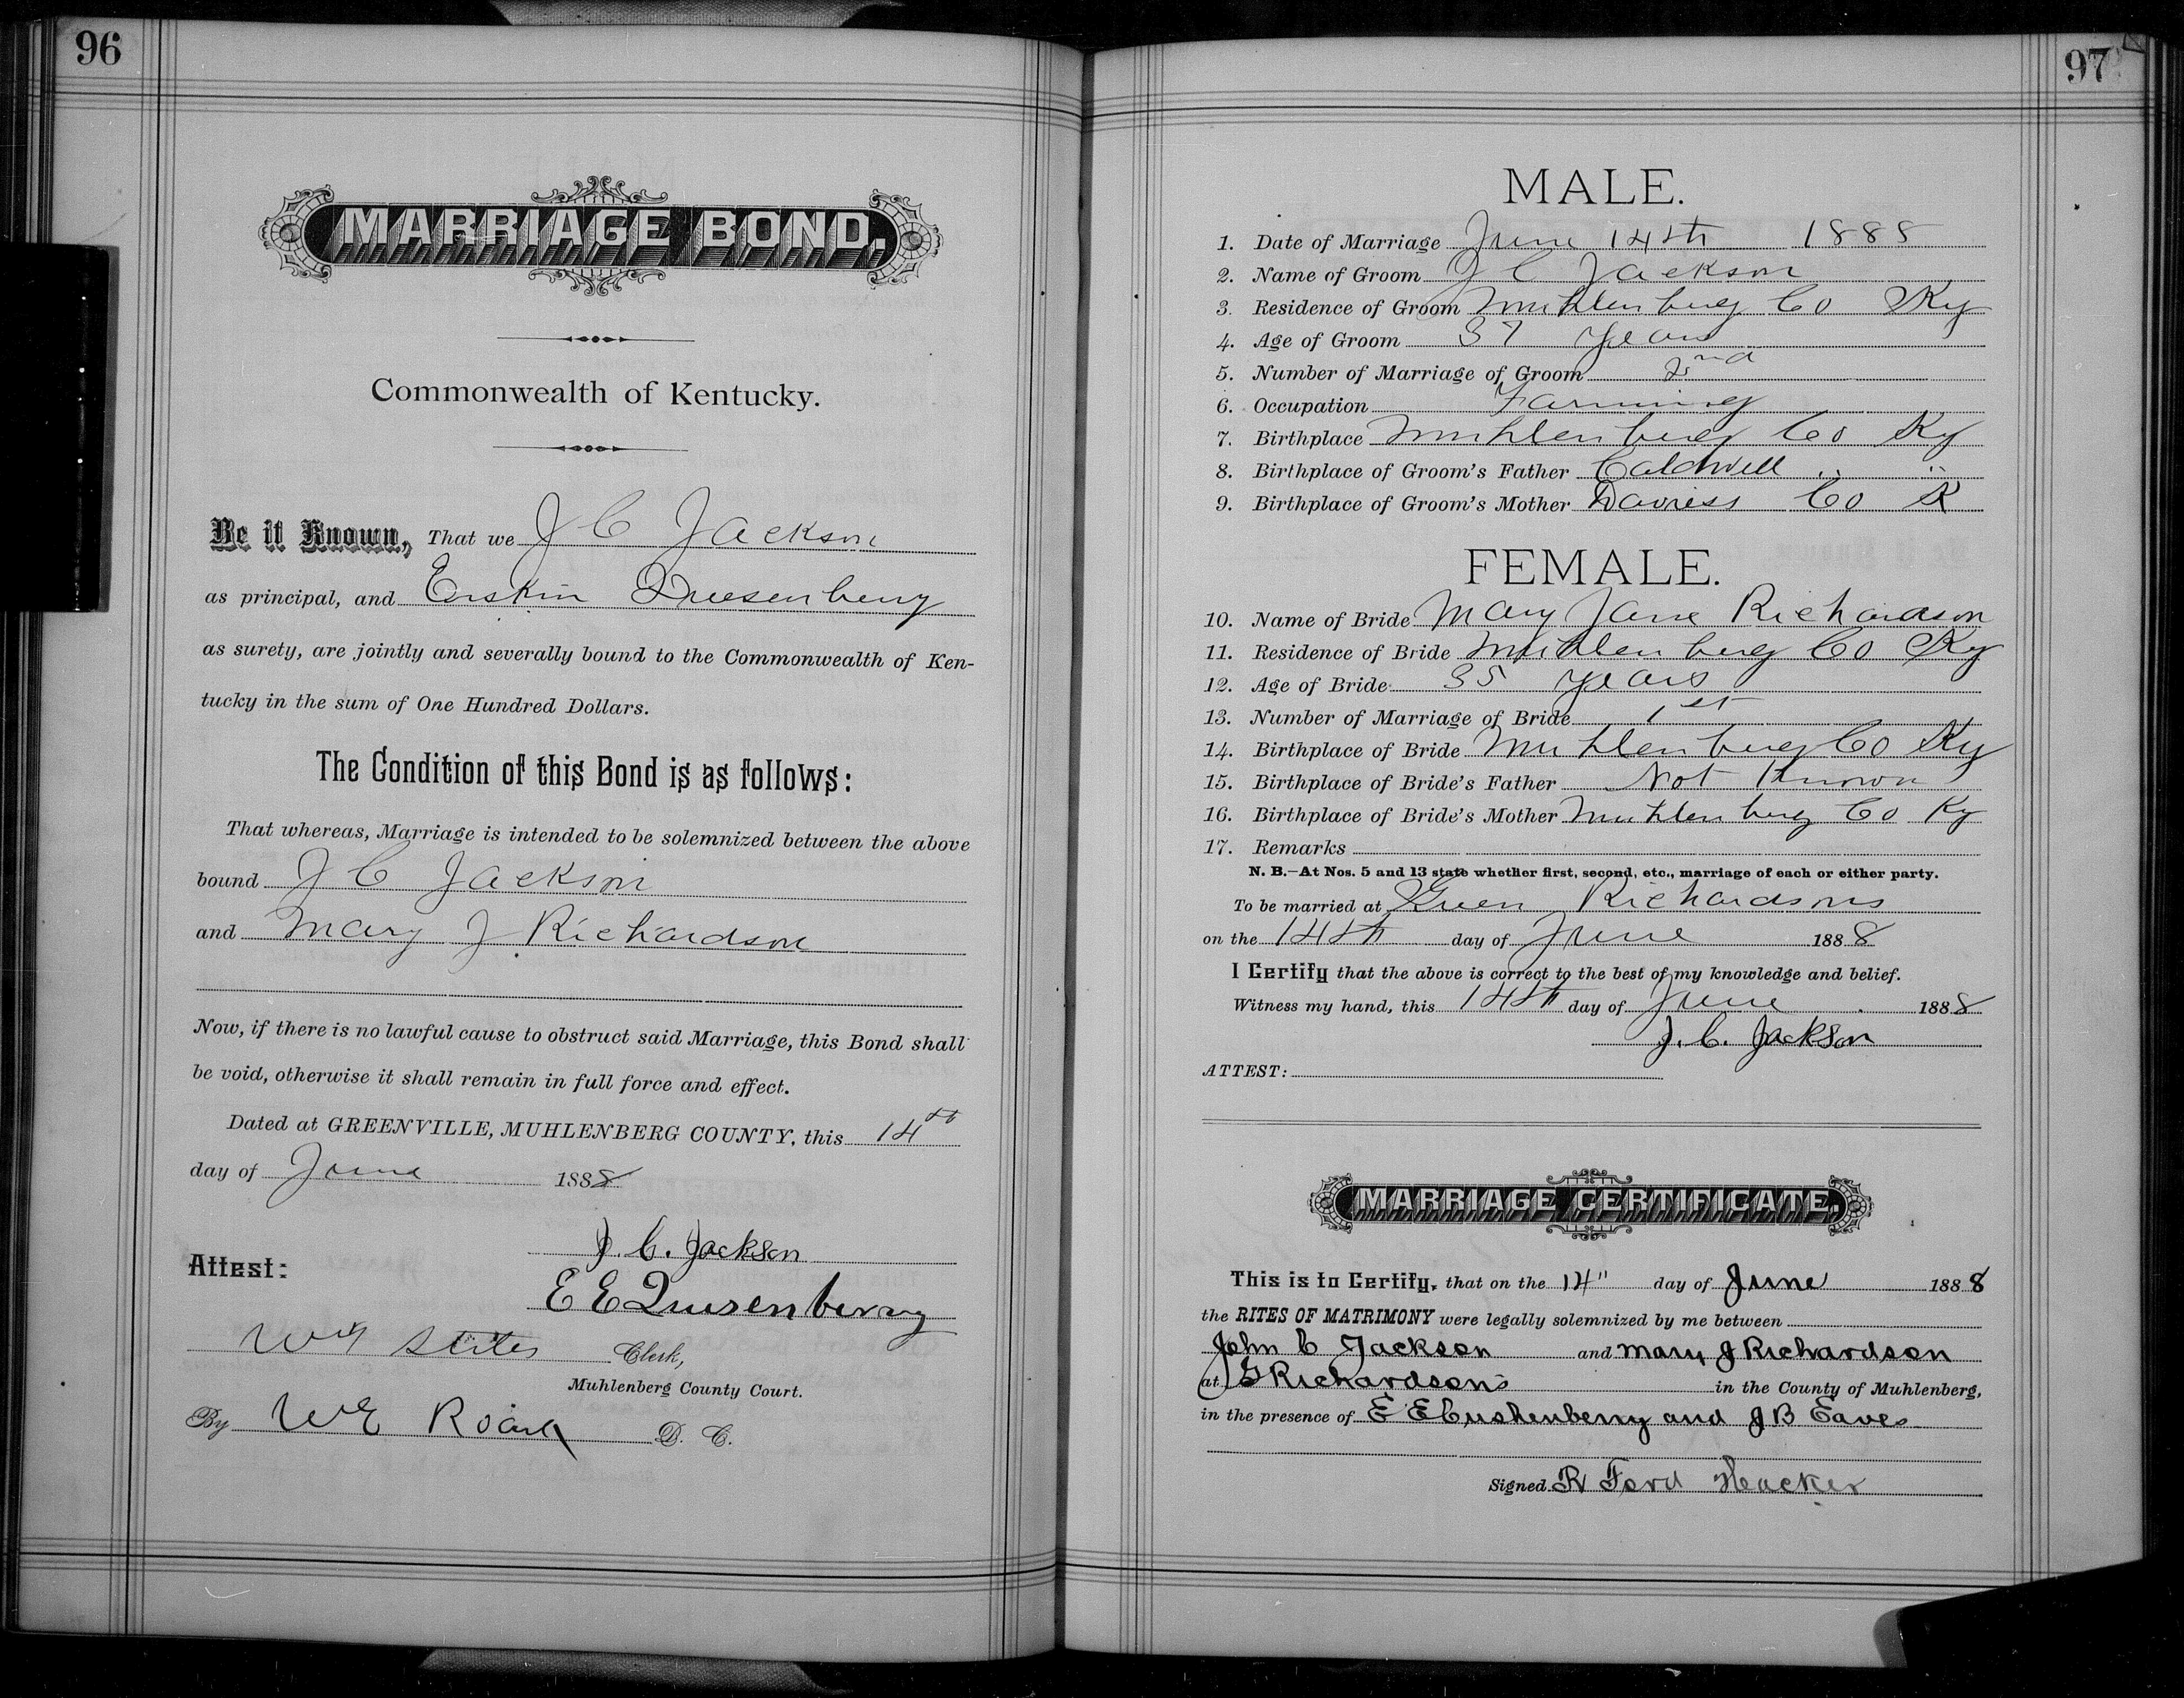 96
MARRIAGE BOND.
Commonwealth of Kentucky.
Be it Known, That we J C Jackson
as principal, and Erskin Quesenberry
as surety, are jointly and severally bound to the Commonwealth of Ken-
tucky in the sum of One Hundred Dollars.
The Condition of this Bond is as follows:
That whereas, Marriage is intended to be solemnized between the above
bound J C Jackson
and Mary J Richardson
Now, if there is no lawful cause to obstruct said Marriage, this Bond shall
be void, otherwise it shall remain in full force and effect.
Dated at GREENVILLE, MUHLENBERG COUNTY, this 14th
day of June 1888
J. C. Jackson
Attest:
E E Quisenberry
Stiles Clerk,
Muhlenberg County Court.
By W E Roark D. C.
97
MALE.
1. Date of Marriage June 14th 1888
2. Name of Groom J C Jackson
3. Residence of Groom Muhlenberg Co Ky
4. Age of Groom 37 Years
5. Number of Marriage of Groom 2nd
6. Occupation Farming
7. Birthplace Muhlenberg Co Ky
8. Birthplace of Groom's Father Caldwell " "
9. Birthplace of Groom's Mother Daviess Co K
FEMALE.
10. Name of Bride Mary Jane Richardson
11. Residence of Bride Muhlenberg Co Ky
12. Age of Bride 35 years
13. Number of Marriage of Bride 1st
14. Birthplace of Bride Muhlenberg Co Ky
15. Birthplace of Bride's Father Not Known
16. Birthplace of Bride's Mother Muhlenberg Co Ky
17. Remarks
N. B.—At Nos. 5 and 13 state whether first, second, etc., marriage of each or either party.
To be married at Green Richardsons
on the 14th day of June 1888
I Certify that the above is correct to the best of my knowledge and belief.
Witness my hand, this 14th day of June 1888
J. C. Jackson
ATTEST:
MARRIAGE CERTIFICATE.
This is to Certify, that on the 14" day of June 1888
the RITES OF MATRIMONY were legally solemnized by me between
John C Jackson and Mary J Richardson
at G Richardson's in the County of Muhlenberg,
in the presence of E E Cushenberry and J B Eaves
Signed R Ford Hacker